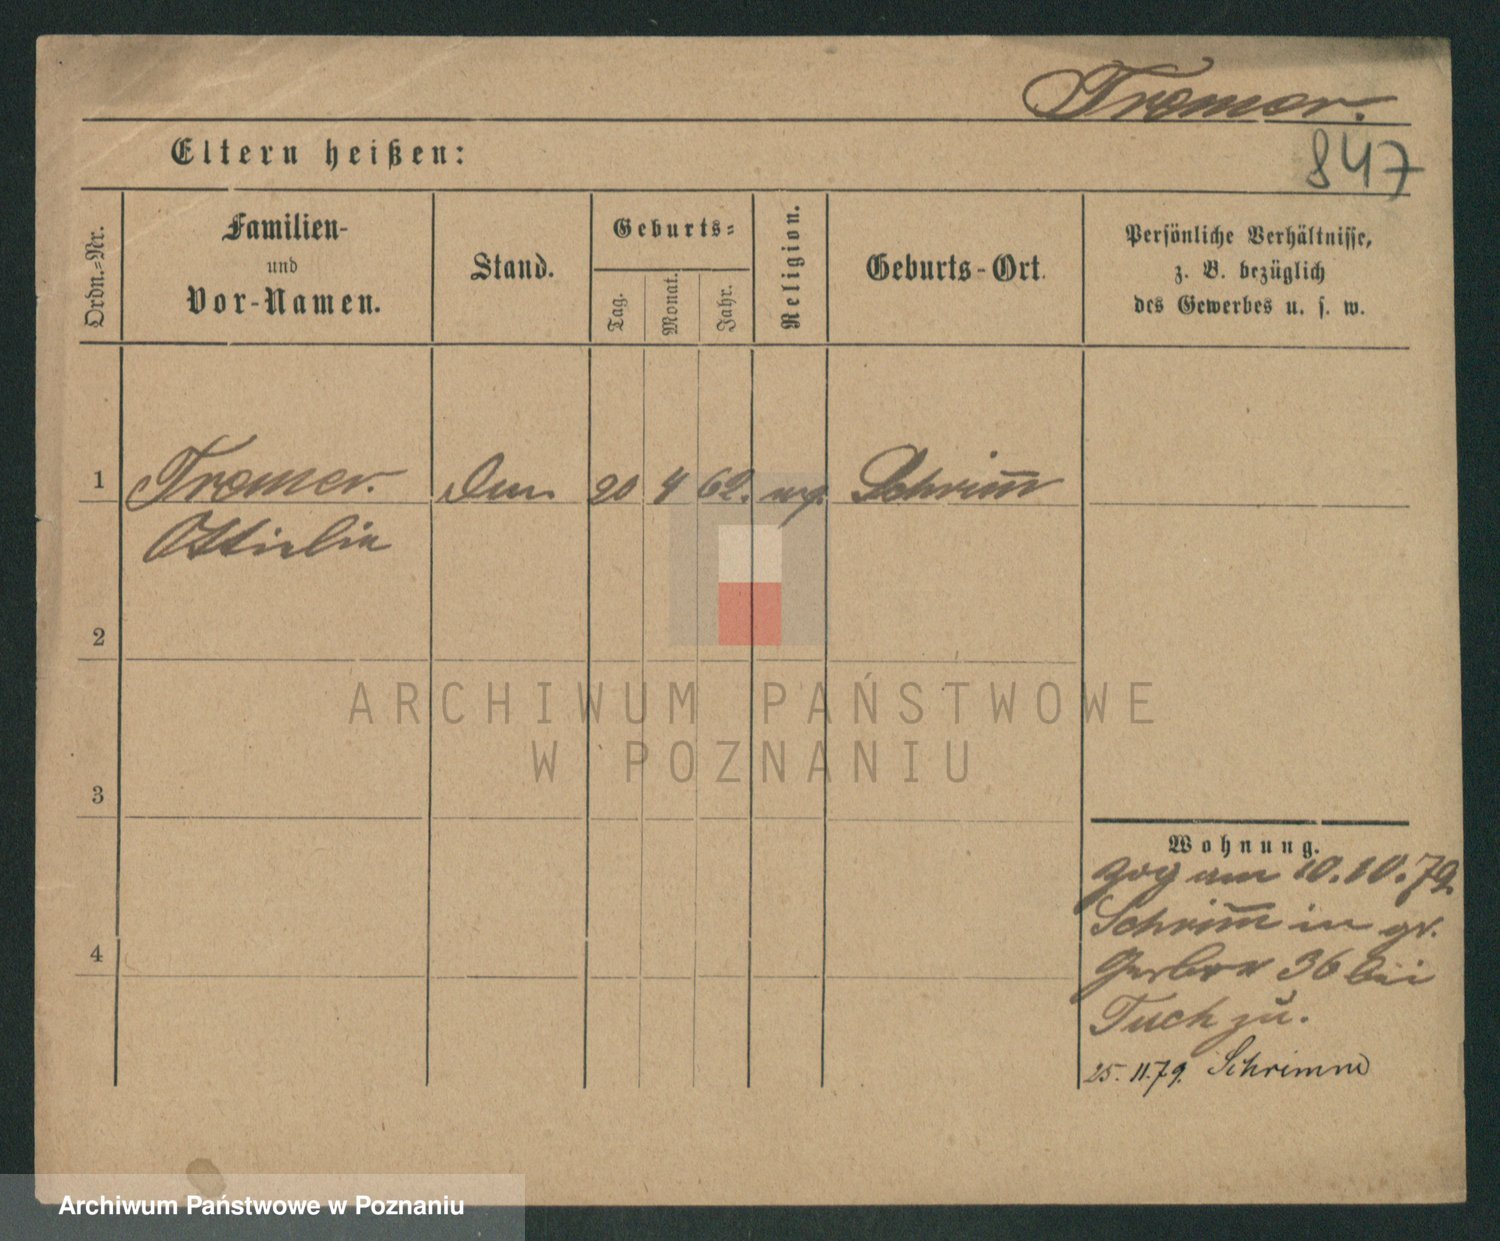 Tromer.
847
Eltern heißen:
Ordn.-Nr.
Familien-
und
Vor-Namen.
Stand.
Geburts-
Tag.
Monat.
Jahr.
Religion.
Geburts-Ort.
Persönliche Verhältnisse,
z. B. bezüglich
des Gewerbes u. s. w.
1 Tromer. 20 4 62. Schrim̅
Ottielie
2
3
4
ARCHIWUM PAŃSTWOWE
W POZNANIU
Wohnung.
zog am 10.10.79.
Schrim̅ in gr.
Gerber 36 bei
Tuch zu.
25.11.79. Schrimm
Archiwum Państwowe w Poznaniu